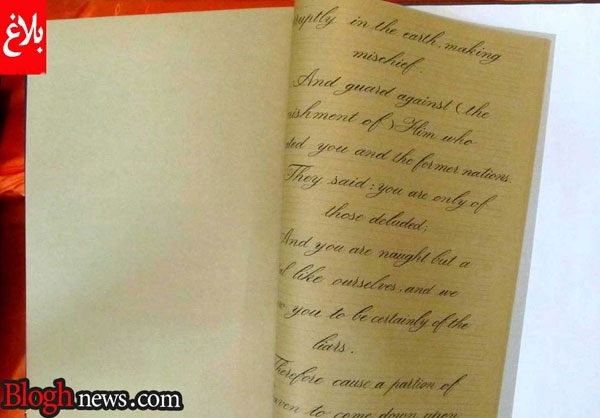 بلاغ
in the earth, making
mischief.
And guard against (the
of) Him who
you and the former nations.
They said: you are only of
those deluded;
And you are naught but a
like ourselves, and we
you to be certainly of the
liars.
Therefore cause a portion of
to come down upon
Bloghnews.com